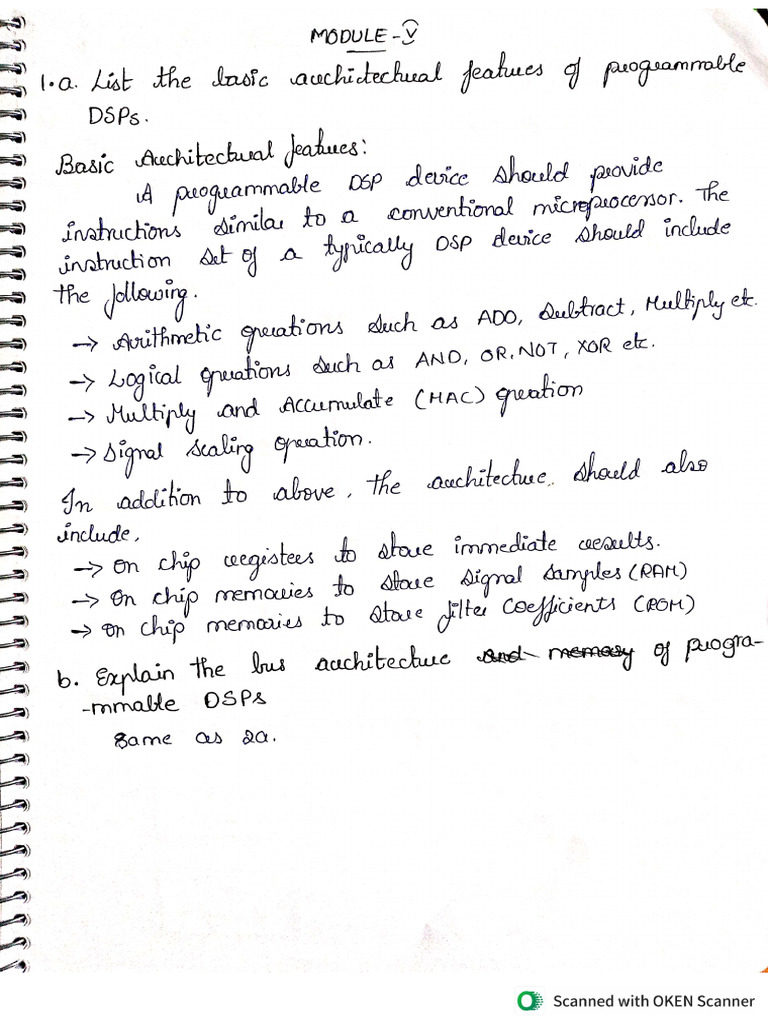 MODULE-V
1.a. List the basic architectual features of programmable
DSPs.
Basic Architectural features:
A programmable DSP device should provide
instructions similar to a conventional microprocessor. The
instruction set of a typically DSP device should include
the following.
→ Arithmetic operations such as ADD, Subtract, Multiply etc.
→ Logical operations such as AND, OR, NOT, XOR etc.
→ Multiply and Accumulate (MAC) operation
→ Signal scaling operation.
In addition to above, the architecture should also
include,
→ On chip registers to store immediate results.
→ On chip memories to store signal samples (RAM)
→ On chip memories to store filter coefficients (ROM)
b. Explain the bus architecture and memory of progra-
-mmable DSPs
Same as 2a.
Scanned with OKEN Scanner